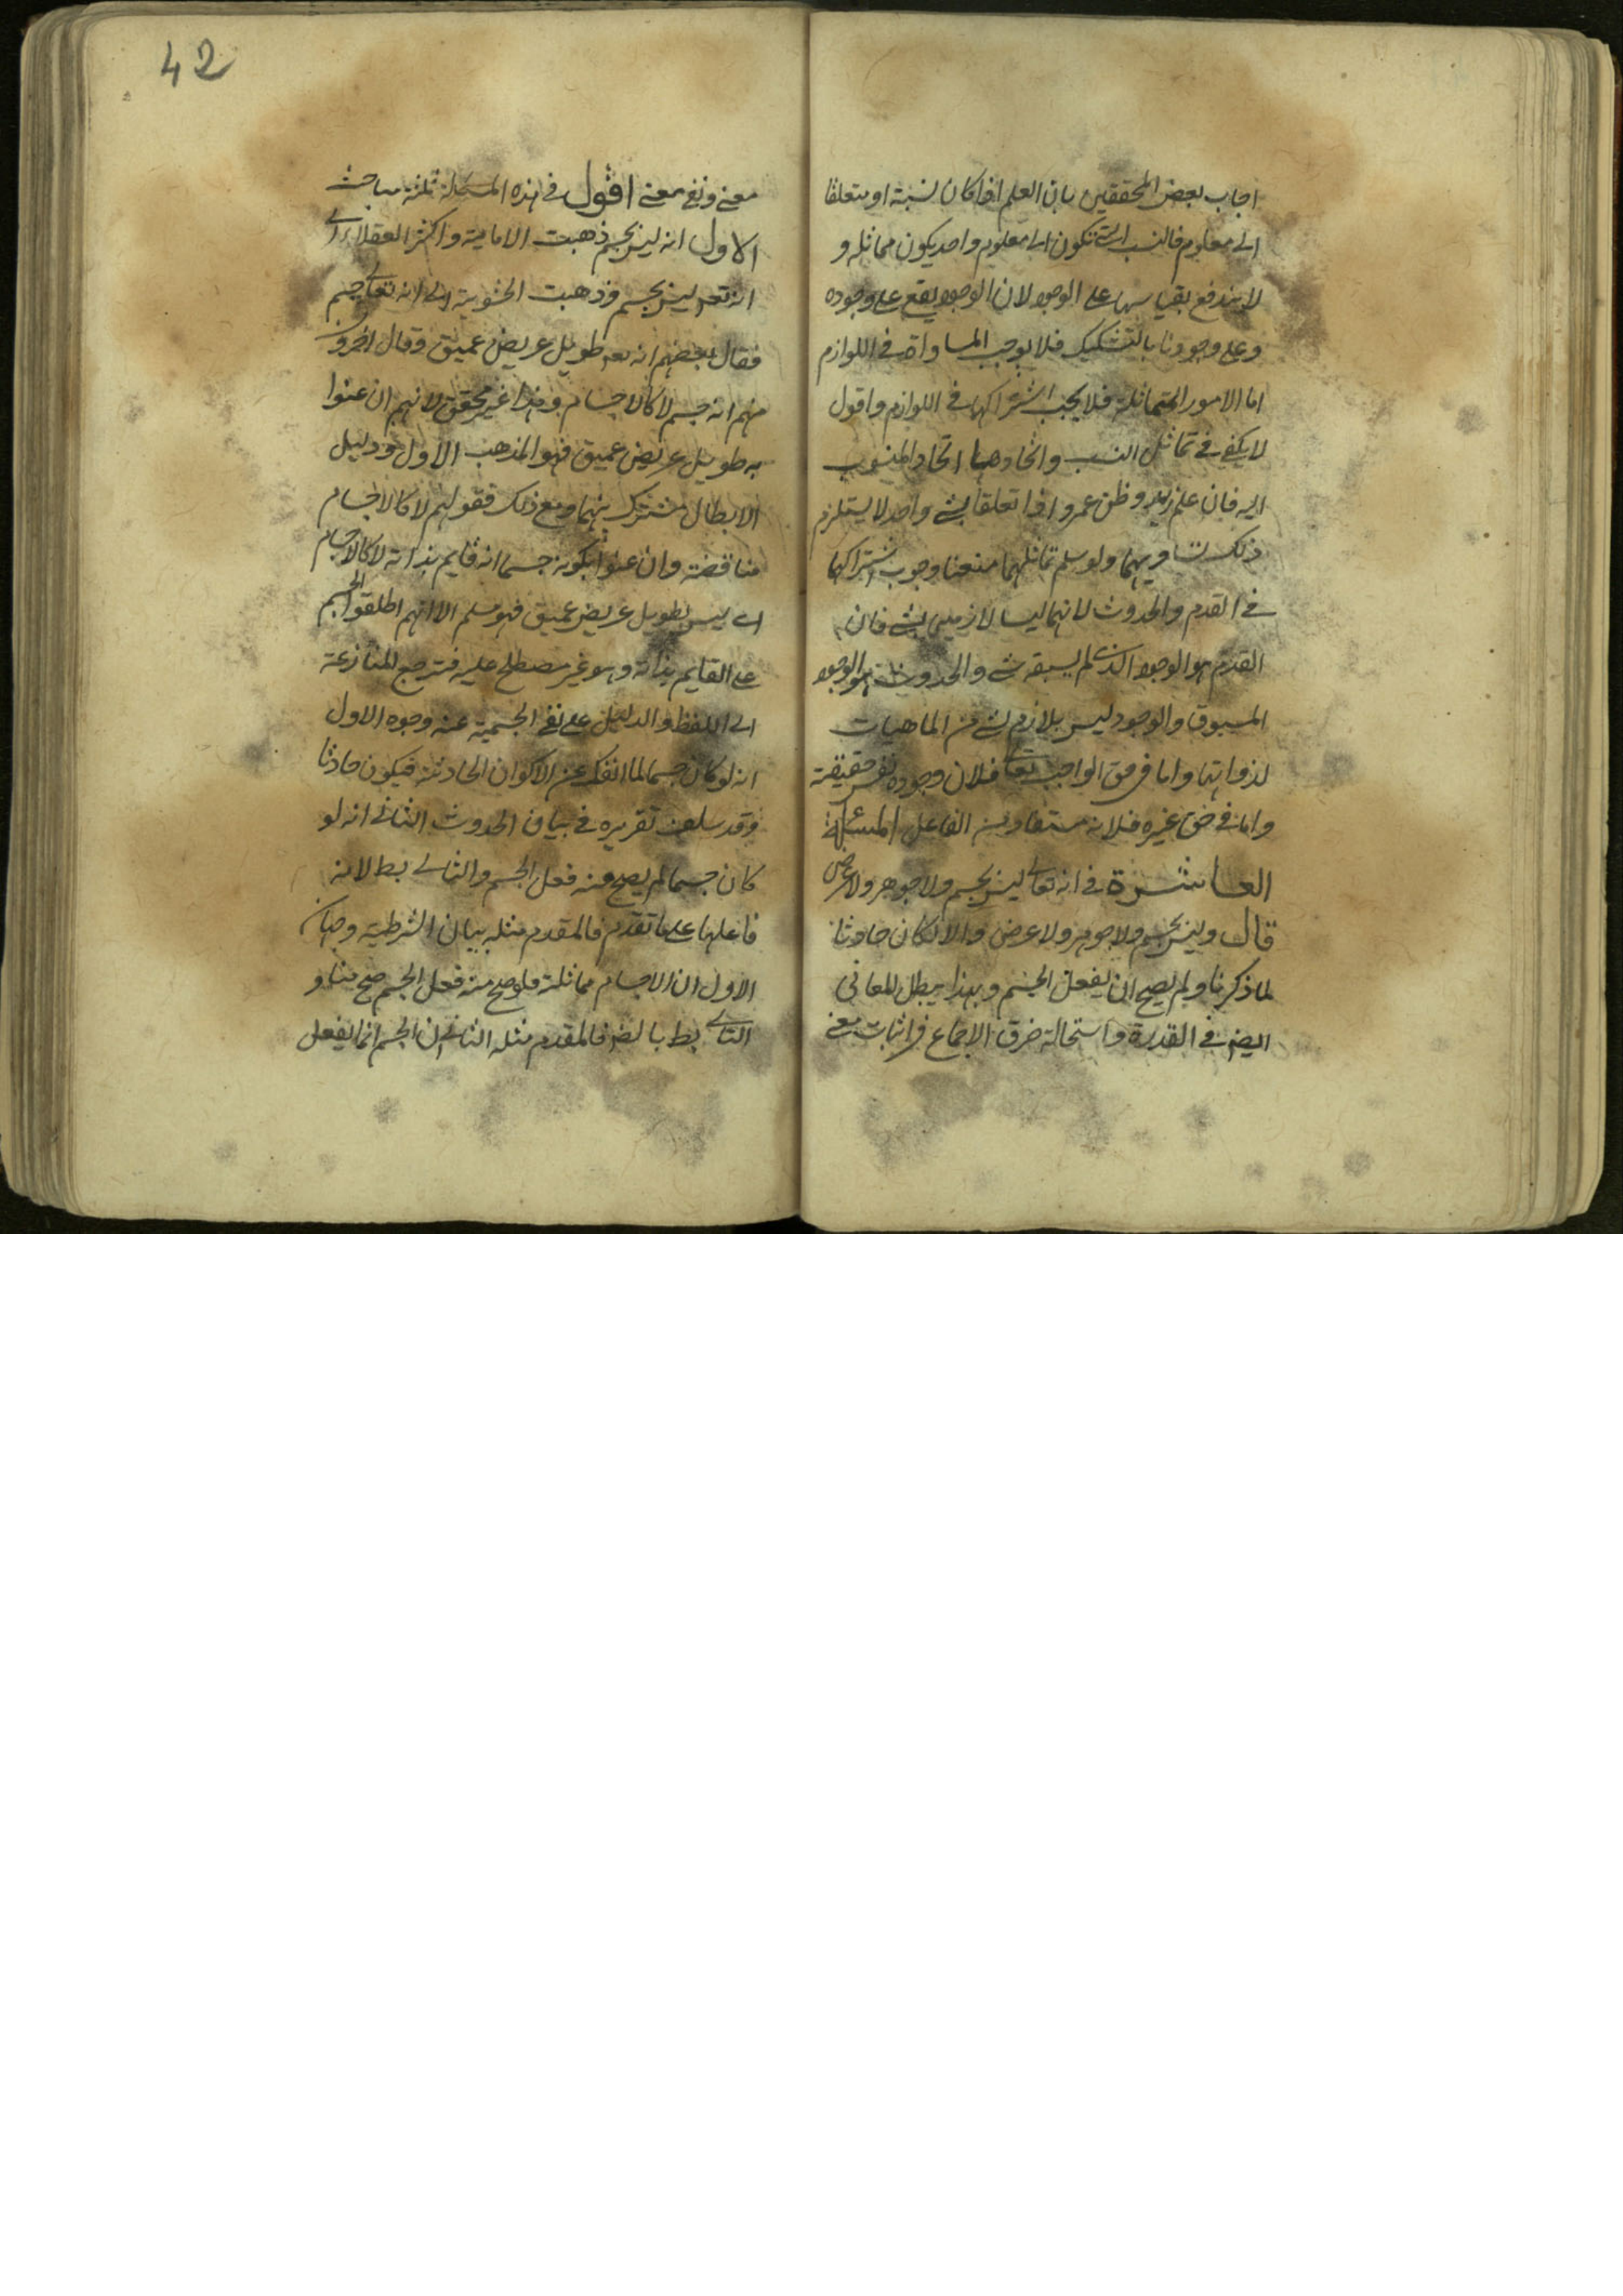 اجاب بعض المحققين بان العلم اذا كان نسبة او متعلقا
الى معلوم فالنسب التى تكون الى معلوم واحد يكون مماثله و
لا يندفع بقياسها على الوجود لان الوجود يقع على وجوده
وعلى وجودنا بالتشكيك فلا يوجب المساواة فى اللوازم
اما الامور المتماثلة فلا يجب اشتراكها فى اللوازم واقول
لا يكفى فى تماثل النسب واتحادها اتحاد المنسوب
اليه فان علم زيد وظن عمرو اذا تعلقا بشى واحد لا يستلزم
ذلك تساويهما ولو سلم تماثلهما منعنا وجوب اشتراكهما
فى القدم والحدوث لانهما ليسا لازمين لشى فان
القدم هو الوجود الذى لم يسبقه شى والحدوث هو الوجود
المسبوق والوجود ليس بلازم لشى من الماهيات
لذواتها واما فى حق الواجب تعالى فلان وجوده نفس حقيقته
واما فى حق غيره فلانه مستفاد من الفاعل المسئلة
العاشرة فى انه تعالى ليس بجسم ولا جوهر ولا عرض
قال وليس بجسم ولا جوهر ولا عرض والا لكان حادثا
لما ذكرنا ولم يصح ان يفعل الجسم وبهذا يبطل المعانى
ايضا فى القدرة واستحالة خرق الاجماع فى اثبات معنى
42
معنى ونفى معنى اقول فى هذه المسئلة ثلثة مباحث
الاول انه ليس بجسم ذهبت الامامية واكثر العقلاء الى
انه تعه ليس بجسم وذهبت الحشوية الى انه تعالى جسم
فقال بعضهم انه تعه طويل عريض عميق وقال اخرون
منهم انه جسم لا كالاجسام وهذا غير محقق لانهم ان عنوا
به طويل عريض عميق فهو المذهب الاول ودليل
الابطال مشترك بينهما ومع ذلك فقولهم لا كالاجسام
مناقضة وان عنوا بكونه جسما انه قايم بذاته لا كالاجسام
اى ليس بطويل عريض عميق فهو مسلم الا انهم اطلقوا الجسم
على القايم بذاته وهو غير مصطلح عليه فترجع المنازعة
الى اللفظ والدليل على نفى الجسمية عنه وجوه الاول
انه لو كان جسما لما انفك عن الاكوان الحادثة فيكون حادثا
وقد سلف تقريره فى بيان الحدوث الثانى انه لو
كان جسما لم يصح منه فعل الجسم والتالى بط لانه
فاعلها على ما تقدم فالمقدم مثله بيان الشرطية وجهان
الاول ان الاجسام مماثلة فلو صح منه فعل الجسم صح منا و
التالى بط بالضر فالمقدم مثله الثانى ان الجسم انما يفعل